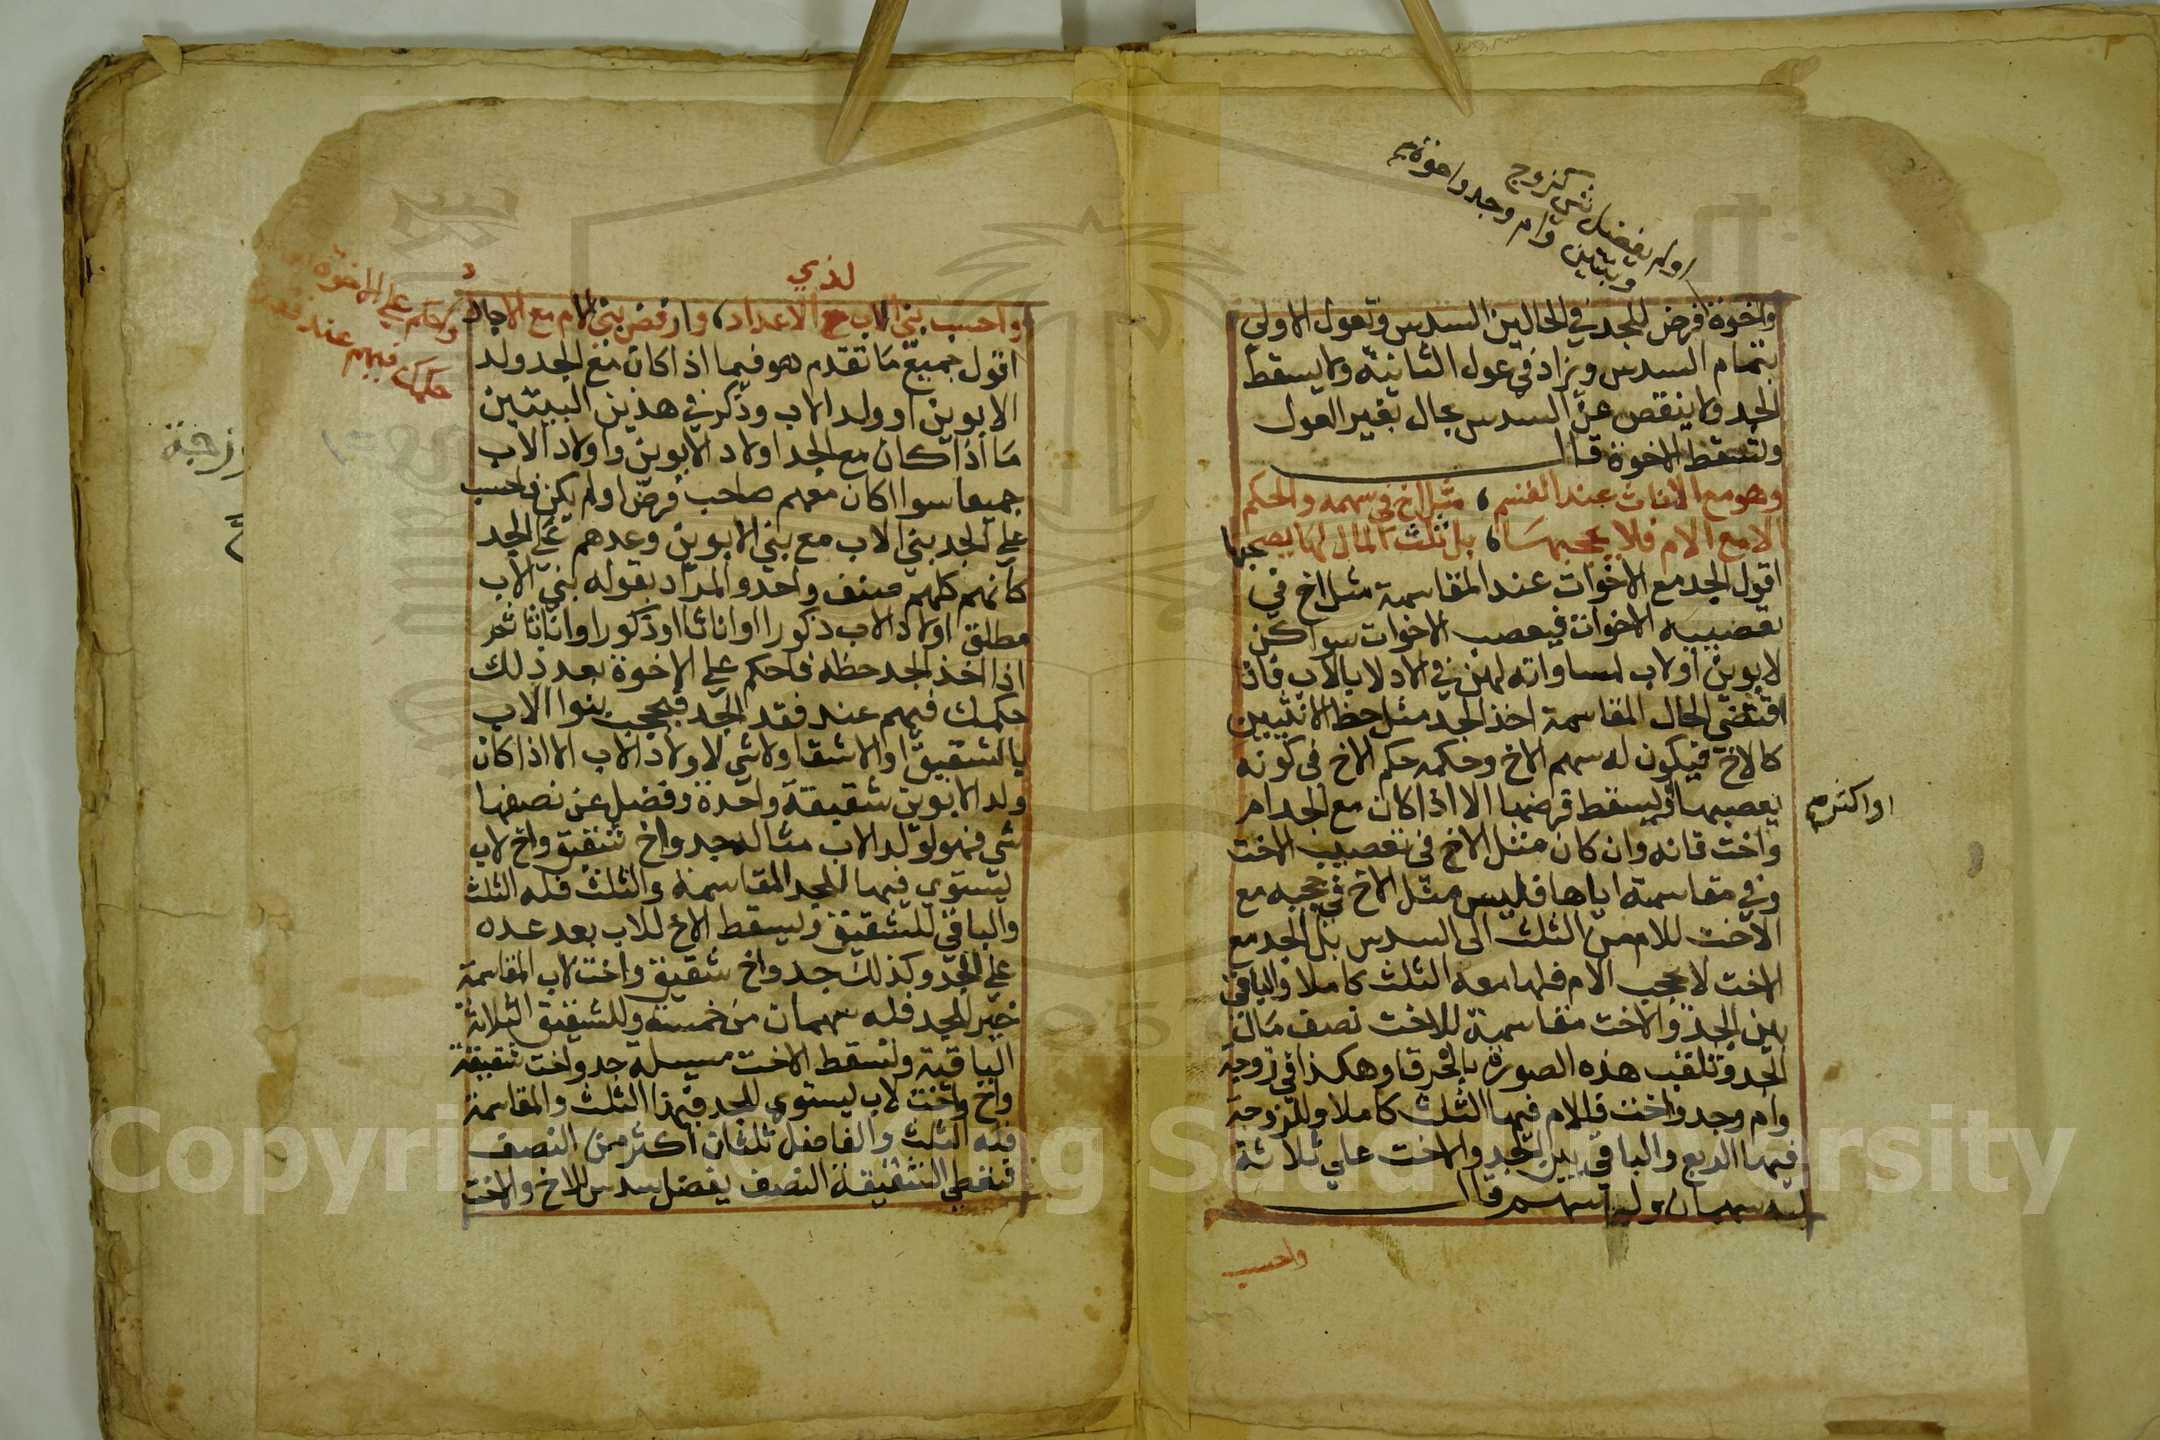 او لم يفضل شي كزوج
وبنتين وام وجد واخوة
واخوة فرض للجد في الحالين السدس وتعول الاولي
بتمام السدس ويزاد في عول الثانية ولا يسقط
الجد ولا ينقص عن السدس بحال بغير العول
وتسقط الاخوة قال
وهو مع الاناث عند القسم ، مثل اخ في سهمه والحكم
الا مع الام فلا يحجبها ، بل ثلث المال لها يصحبها
اقول الجد مع الاخوات عند المقاسمة مثل اخ في
تعصيبه الاخوات فيعصب الاخوات سوا كن
لابوين او لاب لمساواته لهن في الادلا بالاب فان
اقتضي الحال المقاسمة اخذ الجد مثل حظ الانثيين
كالاخ فيكون له سهم الاخ وحكمه حكم الاخ في كونه
يعصبها ويسقط فرضها الا اذا كان مع الجد ام
او اكثر
واخت فانه وان كان مثل الاخ في تعصيب الاخت
وفي مقاسمته اياها فليس مثل الاخ في حجبه مع
الاخت للام من الثلث الى السدس بل الجد مع
الاخت لا يحجب الام فلها معه الثلث كاملا والباقي
بين الجد والاخت مقاسمة للاخت نصف مال
الجد وتلقب هذه الصورة بالخرقا وهكذا في زوجة
وام وجد واخت فالام فيها الثلث كاملا وللزوجة
فيها الربع والباقي بين الجد والاخت على ثلاثة
له سهمان ولها سهم قال
واحسب
لذي
واحسب بني الاب مع الاعداد ، وارفض بني الام مع الاجداد
واحكم علي الاخوة
حكمك فيهم عند فقد
اقول جميع ما تقدم هو فيما اذا كان مع الجد ولد
الابوين او ولد الاب وذكر في هذين البيتين
ما اذا كان مع الجد اولاد الابوين واولاد الاب
جميعا سوا اكان معهم صاحب فرض او لم يكن فاحسب
علي الجد بني الاب مع بني الابوين وعدهم علي الجد
كانهم كلهم صنف واحد والمراد بقوله بني الاب
مطلق اولاد الاب ذكورا او اناثا او ذكورا واناثا ثم
اذا اخذ الجد حظه فاحكم علي الاخوة بعد ذلك
حكمك فيهم عند فقد الجد فيحجب بنوا الاب
بالشقيق او الاشقا ولا شي لاولاد الاب الا اذا كان
ولد الابوين شقيقة واحدة وفضل عن نصفها
شي فهو لولد الاب مثاله جد واخ شقيق واخ لاب
يستوي فيها للجد المقاسمة والثلث فله الثلث
والباقي للشقيق ويسقط الاخ للاب بعد عده
علي الجد وكذلك جد واخ شقيق واخت لاب المقاسمة
خير للجد فله سهمان من خمسة وللشقيق الثلاثة
الباقية وتسقط الاخت مسيلة جد واخت شقيقة
واخ واخت لاب يستوي للجد فيها الثلث والمقاسمة
فله الثلث والفاضل ثلثان اكثر من النصف
فتعطي الشقيقة النصف يفضل سدس للاخ والاخت